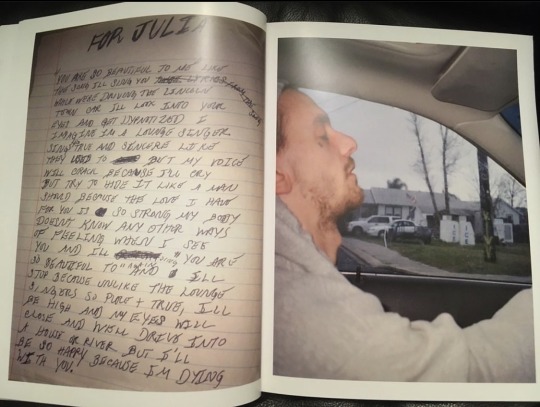 FOR JULIA
YOU ARE SO BEAUTIFUL TO ME LIKE
THE SONG ILL SING YOU
WHILE WERE DRIVING THE LINCOLN
TOWN CAR ILL LOOK INTO YOUR
EYES AND GET HYPNOTIZED I
IMAGINE IM A LOUNGE SINGER
SINGING TRUE AND SINCERE LIKE
THEY USED TO BUT MY VOICE
WILL CRACK BECAUSE I'LL CRY
BUT TRY TO HIDE IT LIKE A MAN
SHOULD BECAUSE THE LOVE I HAVE
FOR YOU IS SO STRONG MY BODY
DOESNT KNOW ANY OTHER WAYS
OF FEELING WHEN I SEE
YOU AND ILL "YOU ARE
SO BEAUTIFUL TO" AND ILL
STOP BECAUSE UNLIKE THE LOUNGE
SINGERS SO PURE + TRUE, ILL
BE HIGH AND MY EYES WILL
CLOSE AND WE'LL DRIVE INTO
A HOUSE OR RIVER BUT I'LL
BE SO HAPPY BECAUSE IM DYING
WITH YOU.